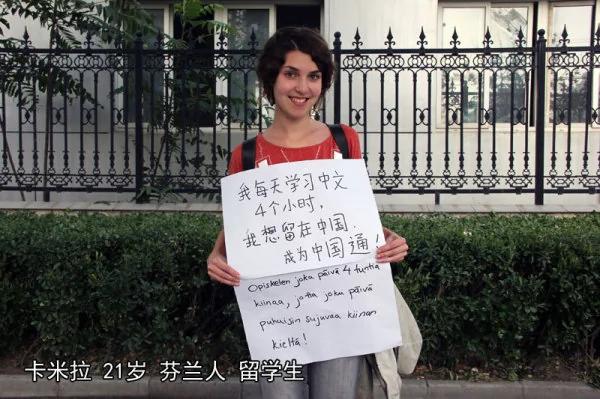 我每天学习中文
4个小时，
我想留在中国.
成为中国通！
Opiskelen joka päivä 4 tuntia
kiinaa, jotta joku päivä
puhuisin sujuvaa kiinan
kieltä!
卡米拉 21岁 芬兰人 留学生